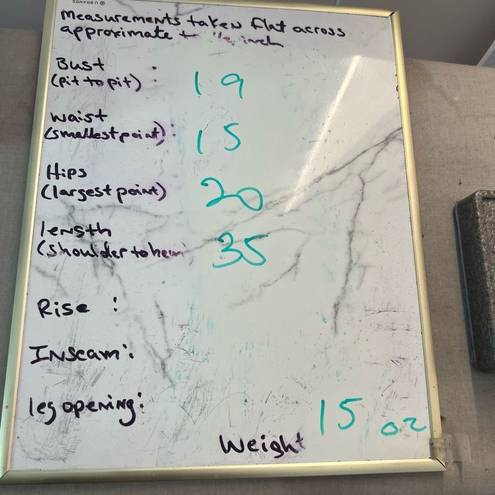 Measurements taken flat across
approximate + ½ inch
Bust
(pit to pit) : 19
waist
(smallest point) : 15
Hips
(largest point) 20
length
(shoulder to hem) 35
Rise :
Inseam :
leg opening :
Weight 15 oz